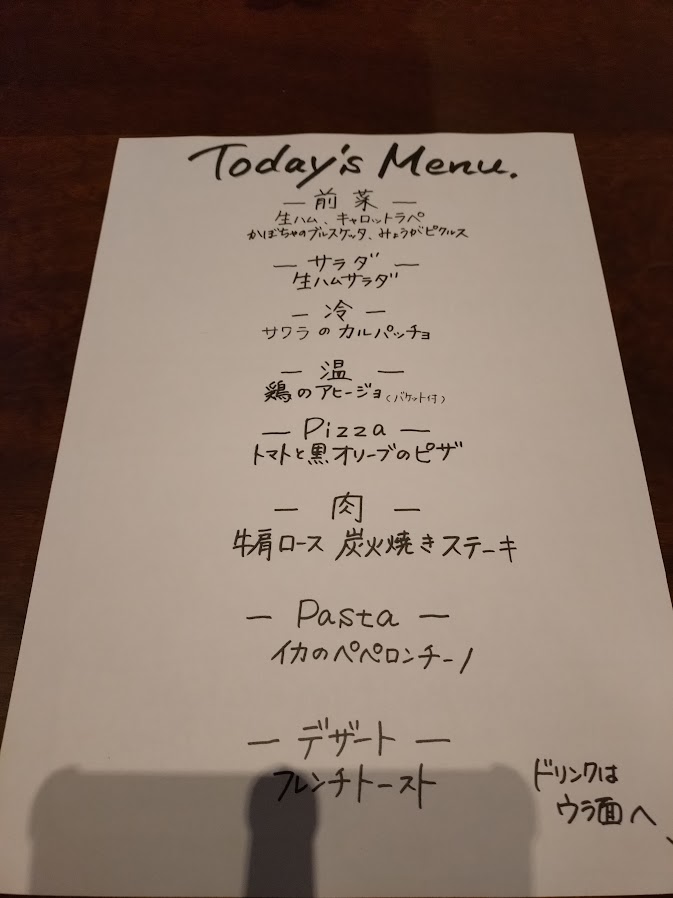 Today's Menu.
— 前菜 —
生ハム、キャロットラペ
かぼちゃのブルスケッタ、みょうがピクルス
— サラダ —
生ハムサラダ
— 冷 —
サワラのカルパッチョ
— 温 —
鶏のアヒージョ(バケット付)
— Pizza —
トマトと黒オリーブのピザ
— 肉 —
牛肩ロース 炭火焼きステーキ
— Pasta —
イカのペペロンチーノ
— デザート —
フレンチトースト
ドリンクは
ウラ面へ